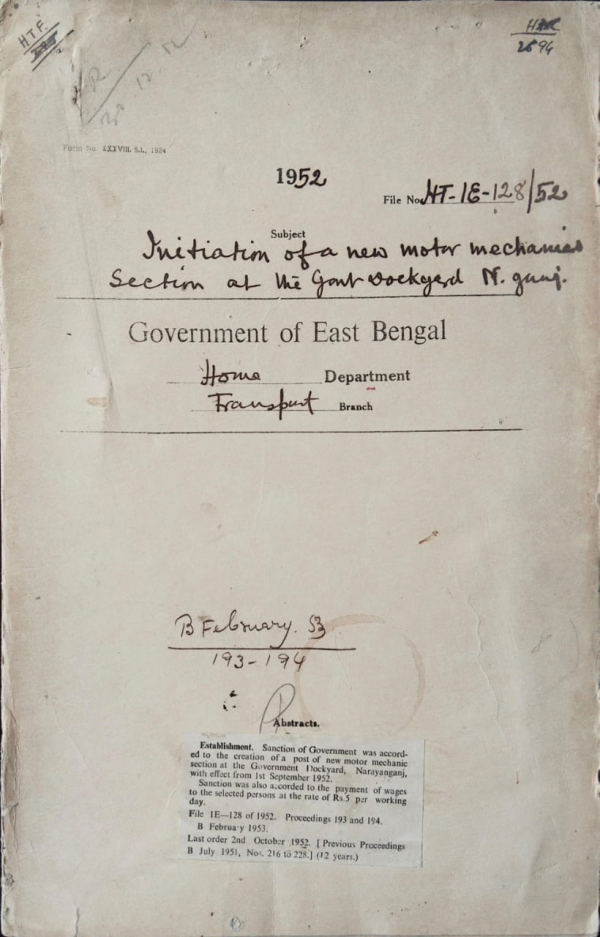 H.T.F.
25 94
Form No. XXXVIII. S.L., 1924
1952
File No. HT-1E-128/52
Subject
Initiation of a new motor mechanics
Section at the Govt Dockyard N. gunj.
Government of East Bengal
Home Department
Transport Branch
B February. 53
193-194
Abstracts.
Establishment. Sanction of Government was accord-
ed to the creation of a post of new motor mechanic
section at the Government Dockyard, Narayanganj,
with effect from 1st September 1952.
Sanction was also accorded to the payment of wages
to the selected persons at the rate of Rs. 5 per working
day.
File 1E—128 of 1952. Proceedings 193 and 194.
B February 1953.
Last order 2nd October 1952. [ Previous Proceedings
B July 1951, Nos. 216 to 228.] (12 years.)